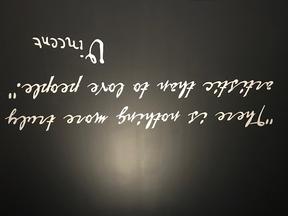 "There is nothing more truly
artistic than to love people."
Vincent